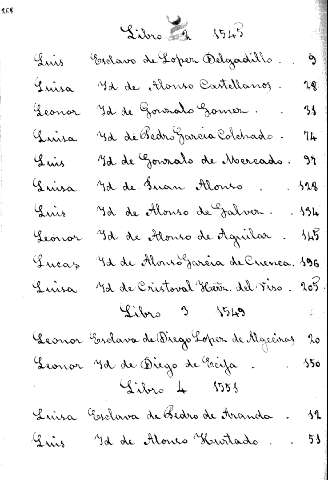 Libro 2 1545
Luis Esclavo de Lopez Delgadillo . . 9
Luisa Id de Alonso Castellanos . 28
Leonor Id de Gonzalo Gomez . . 31
Luisa Id de Pedro Garcia Colchado . 74
Luis Id de Gonzalo de Mercado . 97
Luisa Id de Juan Alonso . . 128
Luis Id de Alonso de Galvez . . 134
Leonor Id de Alonso de Aguilar . 145
Lucas Id de Alonso Garcia de Cuenca . 196
Luisa Id de Cristoval Hern. del Viso . 205
Libro 3 1549
Leonor Esclava de Diego Lopez de Algeciras 20
Leonor Id de Diego de Ecija . . 150
Libro 4 1551
Luisa Esclava de Pedro de Aranda . . 12
Luis Id de Alonso Hurtado . . 51